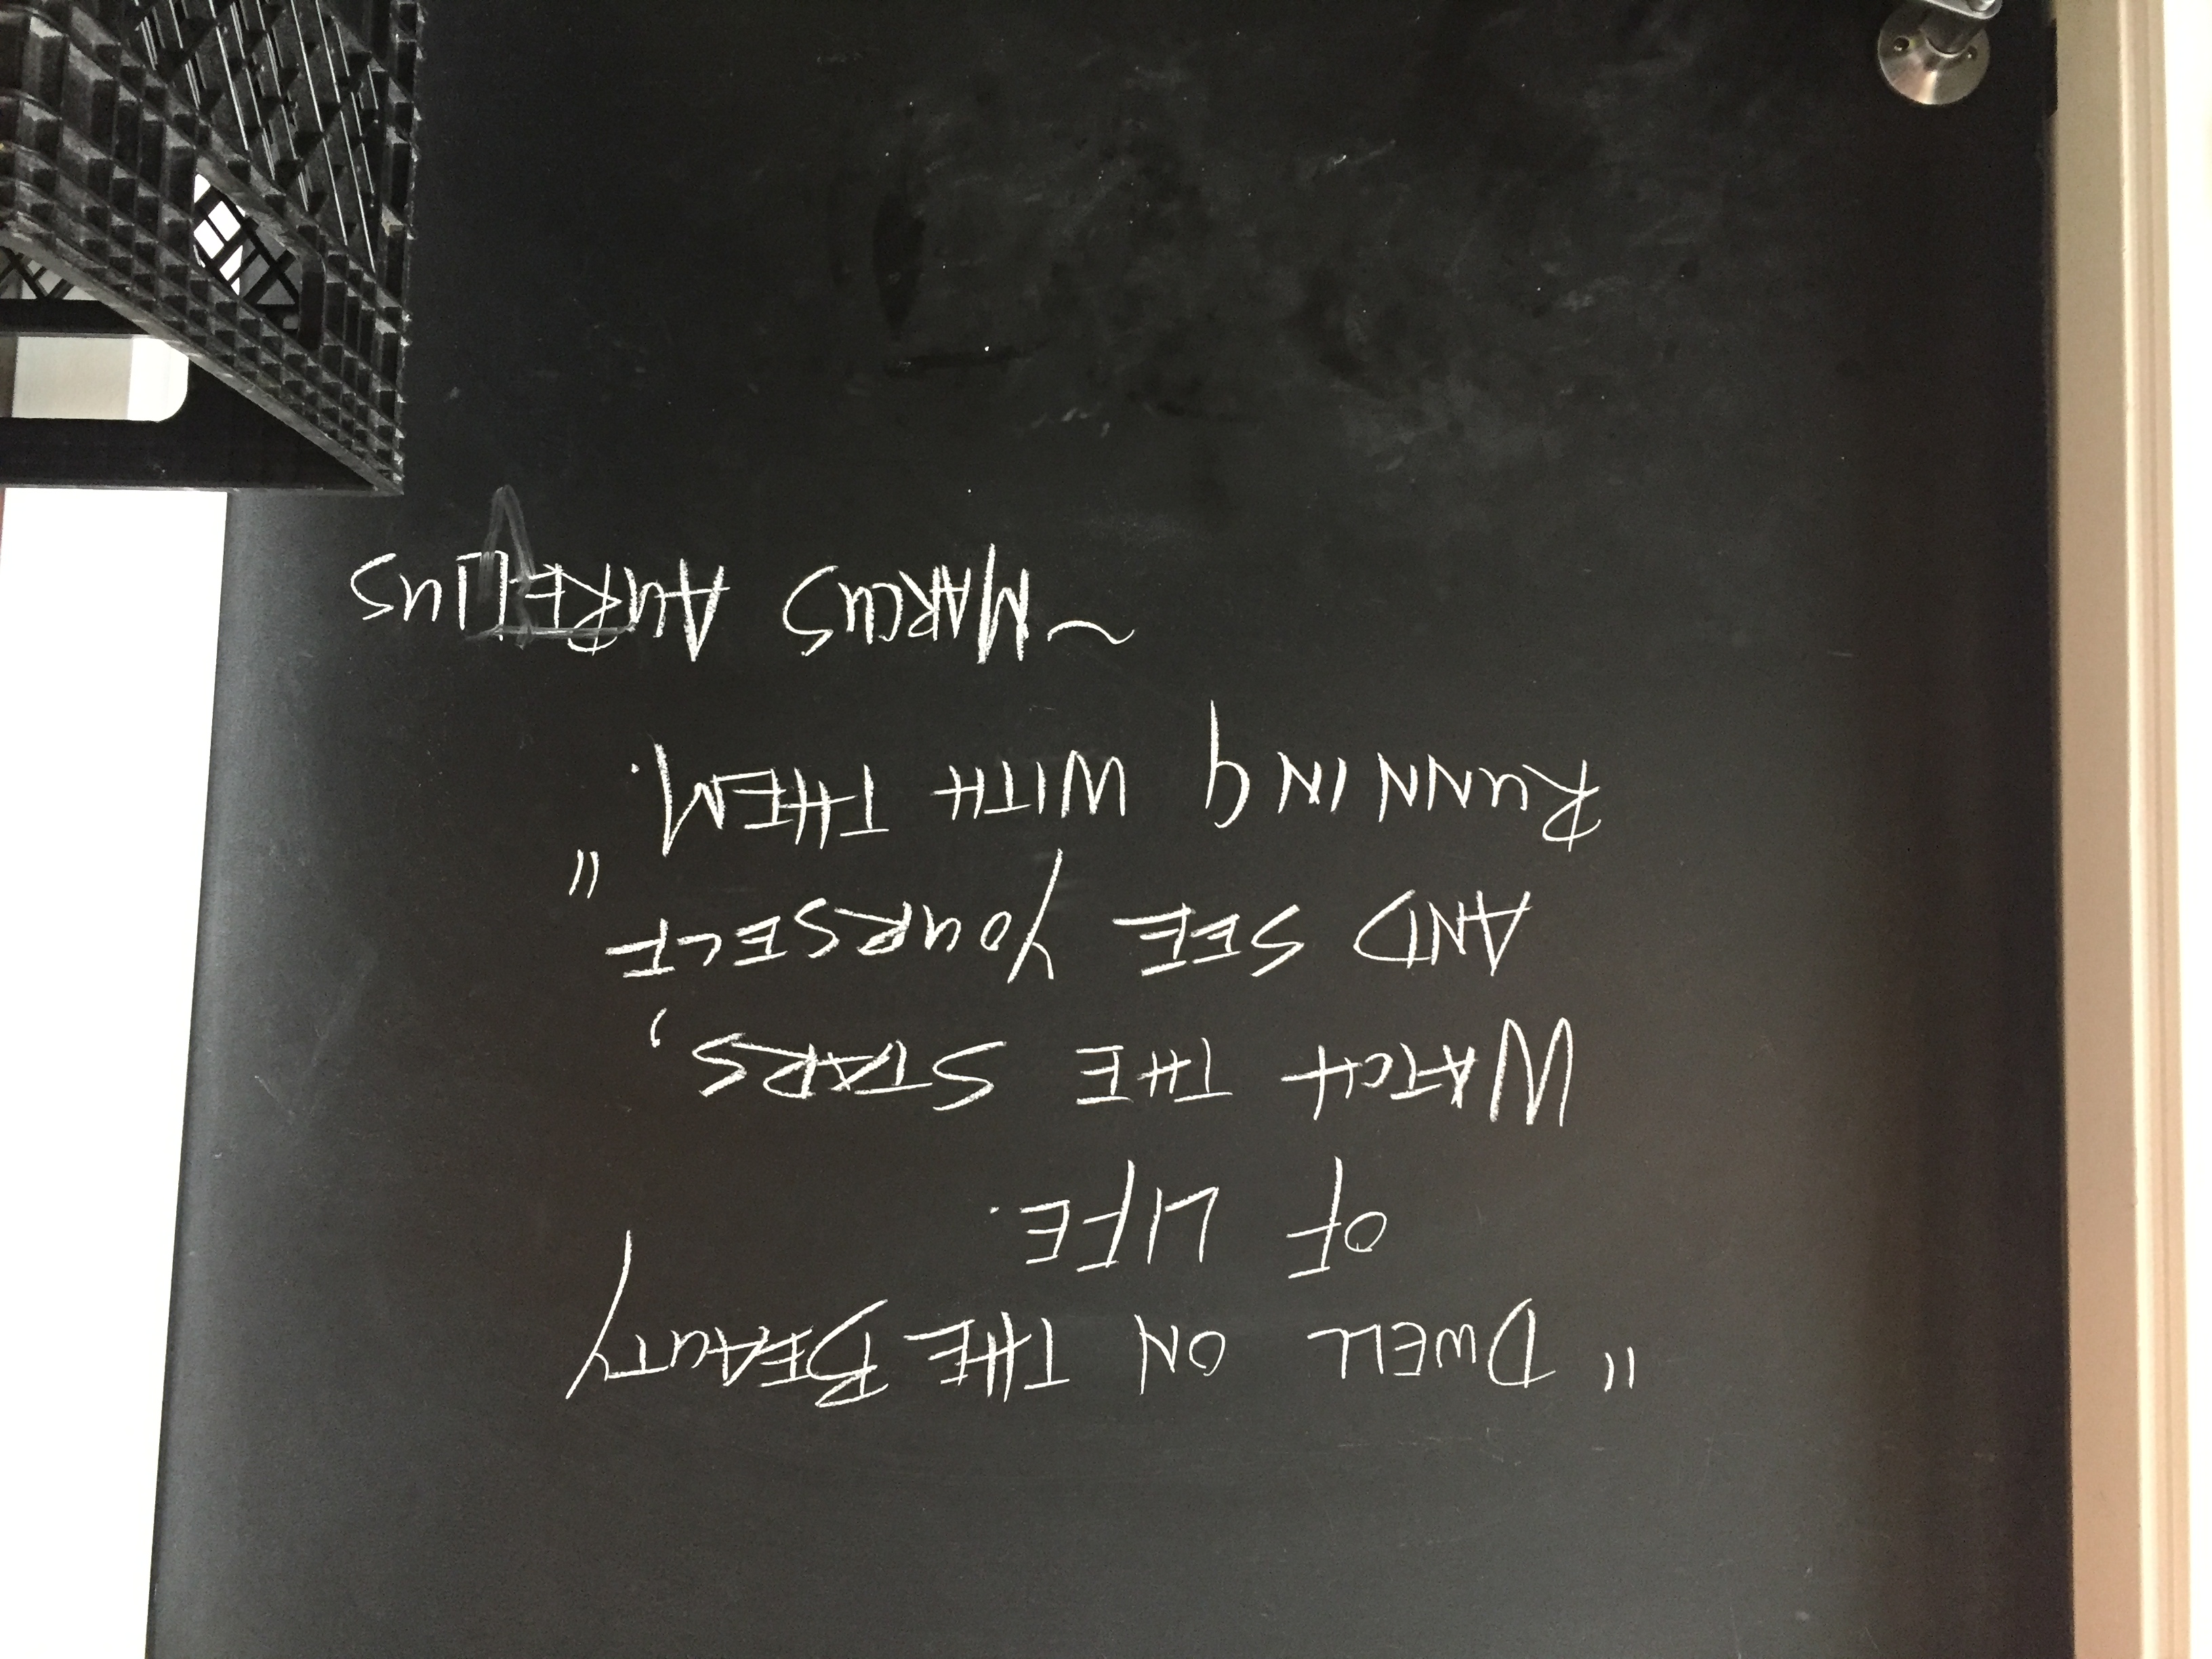 "DWELL ON THE BEAUTY
OF LIFE.
WATCH THE STARS,
AND SEE YOURSELF
RUNNING WITH THEM."
~MARCUS AURELIUS